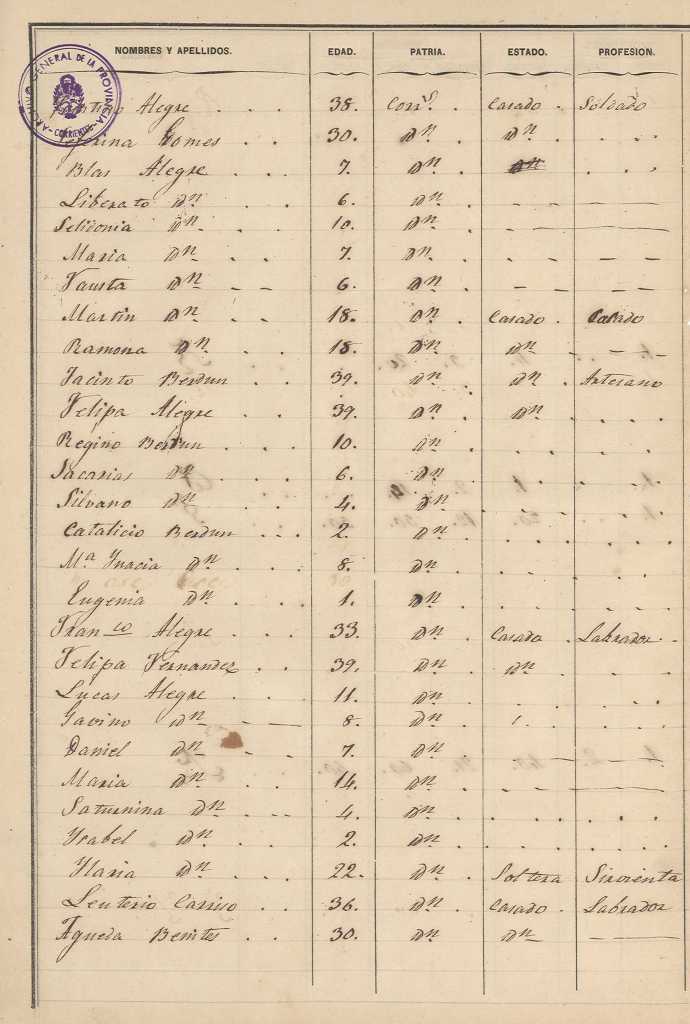 NOMBRES Y APELLIDOS. EDAD. PATRIA. ESTADO. PROFESION.
ARCHIVO GENERAL DE LA PROVINCIA - CORRIENTES -
Alegre 38. Corr.s Casado Soldado
Gomes 30. Dn Dn
Blas Alegre 7. Dn Dn
Liberato Dn 6. Dn
Selidonia Dn 10. Dn
Maria Dn 7. Dn
Fausta Dn 6. Dn
Martin Dn 18. Dn Casado
Ramona Dn 18. Dn Dn
Jacinto Berdun 39. Dn Dn Artesano
Felipa Alegre 39. Dn Dn
Regino Berdun 10. Dn
Sacarias Dn 6. Dn
Silvano Dn 4. Dn
Catalicio Berdun 2. Dn
Ma Ynacia Dn 8. Dn
Eugenia Dn 1. Dn
Franco Alegre 33. Dn Casado Labrador
Felipa Fernandez 39. Dn Dn
Lucas Alegre 11. Dn
Gavino Dn 8. Dn
Daniel Dn 7. Dn
Maria Dn 14. Dn
Saturnina Dn 4. Dn
Ysabel Dn 2. Dn
Ylaria Dn 22. Dn Soltera Sirvienta
Leuterio Carriso 36. Dn Casado Labrador
Agueda Benites 30. Dn Dn